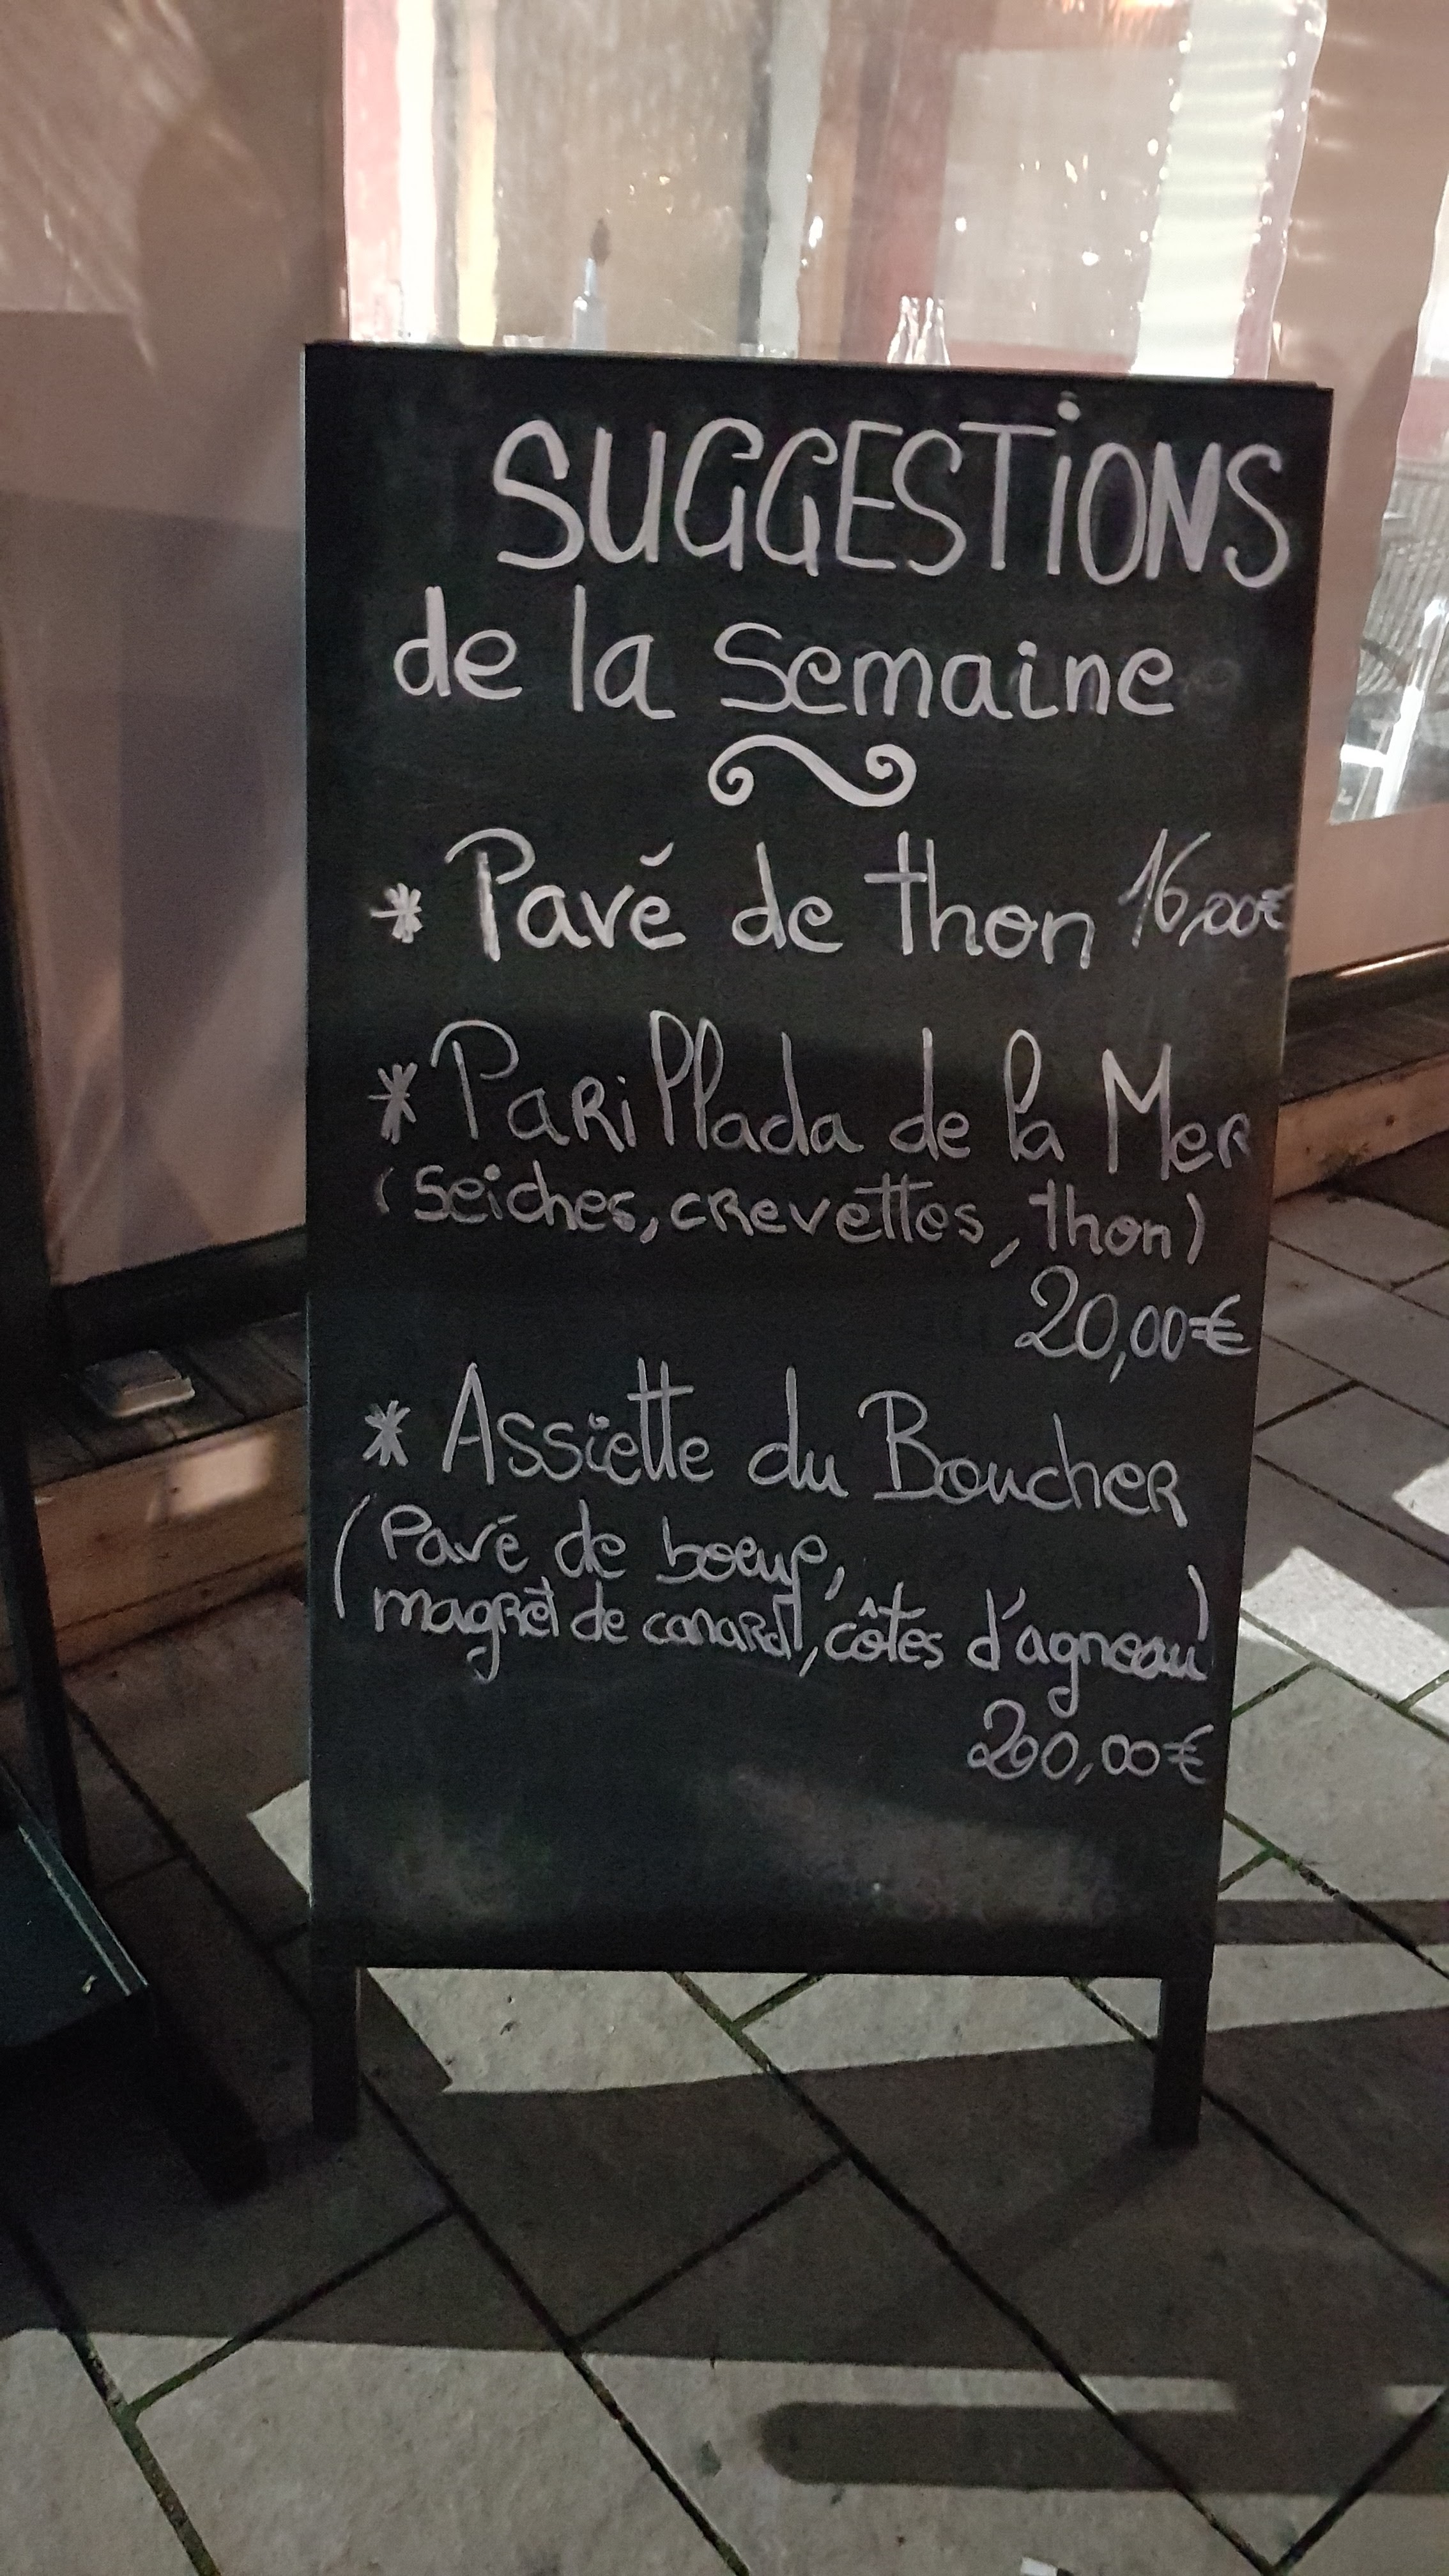 SUGGESTIONS
de la Semaine
* Pavé de thon 16,00€
* Parillada de la Mer
(Seiches, crevettes, thon)
20,00€
* Assiette du Boucher
(Pavé de boeuf,
magret de canard, côtes d'agneau)
200,00€